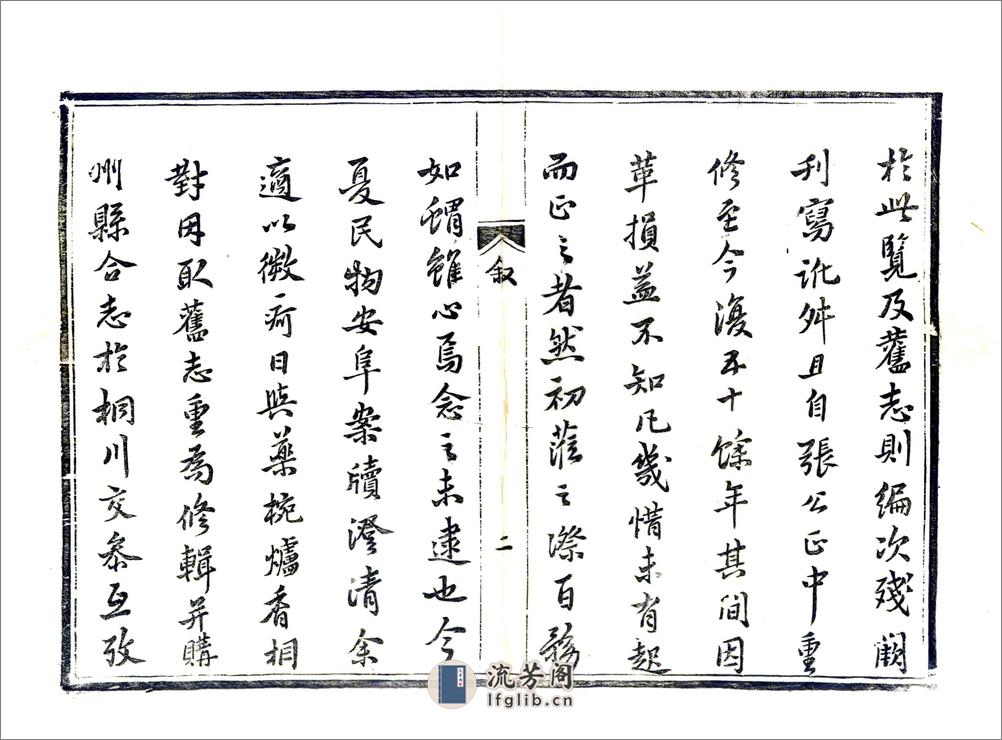 於此覽及舊志則編次殘闕
刊寫訛舛且自張公正中重
修至今復五十餘年其間因
革損益不知凡幾惜未有起
而正之者然初蒞之際百務
叙
二
如蝟雖心焉念之未逮也今
夏民物安阜案牘澄清余
適以微疴日與藥椀爐香相
對因取舊志重爲修輯并購
州縣合志於桐川交叅互攷
流芳阁
lfglib.cn